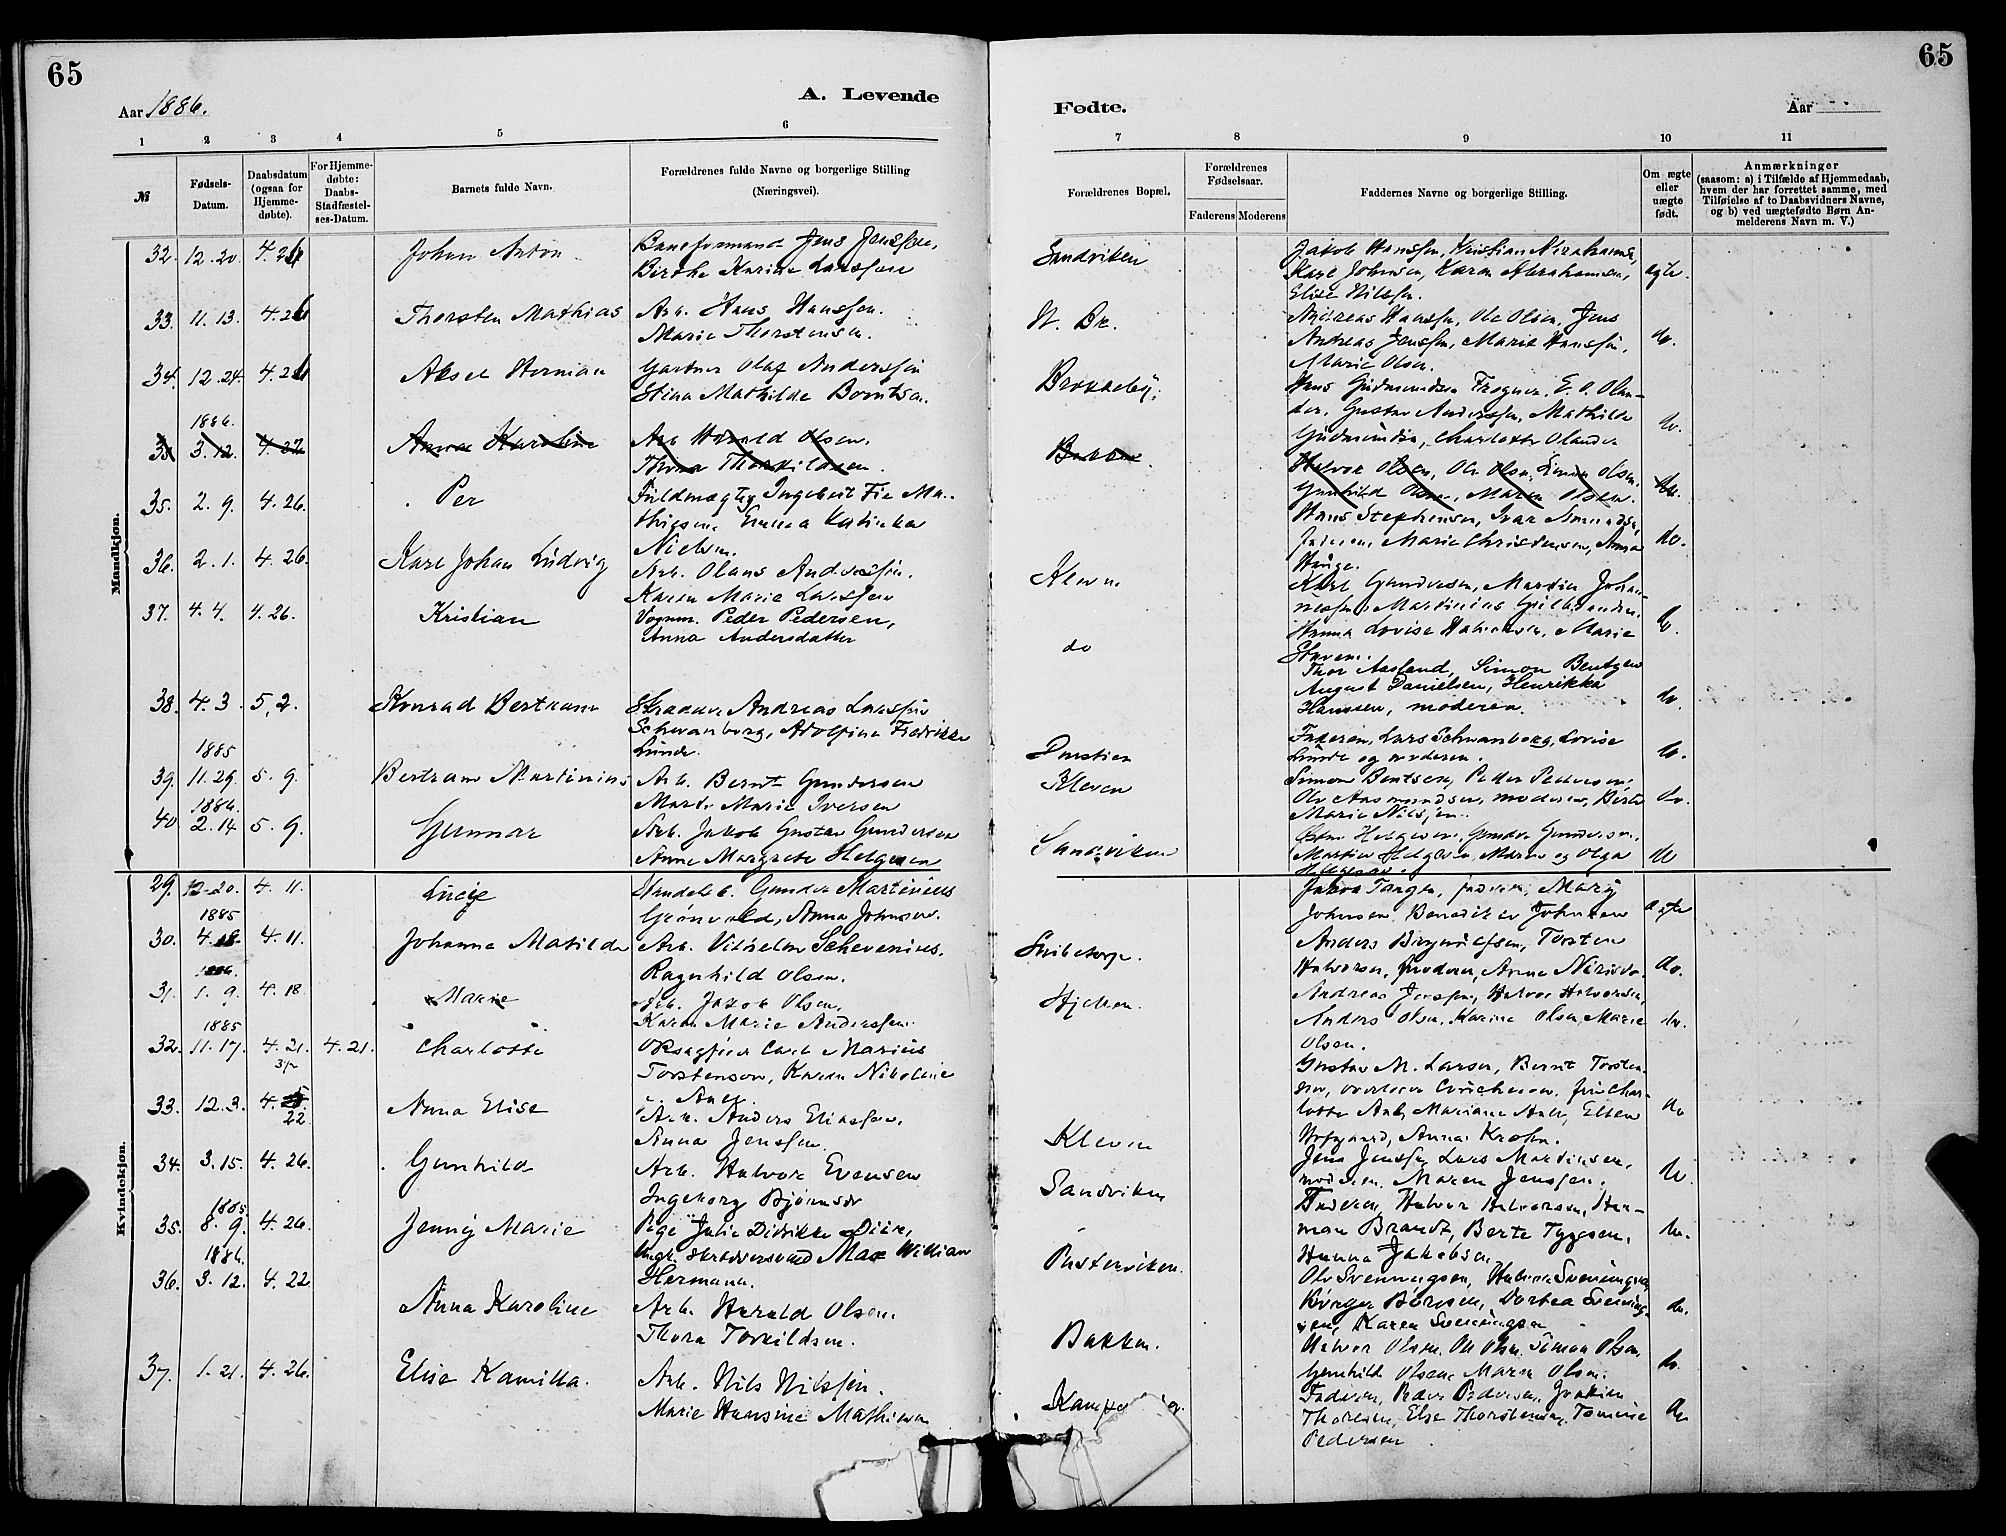 65
65
Aar 1886.
A. Levende
Fødte.
Aar
1
2
3
4
5
6
7
8
9
10
11
№
Fødsels-Datum.
Daabsdatum (ogsaa for Hjemme-døbte).
For Hjemme-døbte: Daabs-Stadfæstel-ses-Datum.
Barnets fulde Navn.
Forældrenes fulde Navne og borgerlige Stilling (Næringsvei).
Forældrenes Bopæl.
Forældrenes Fødselsaar.
Faderens
Moderens
Faddernes Navne og borgerlige Stilling.
Om ægte eller uægte født.
Anmærkninger
(saasom: a) i Tilfælde af Hjemmedaab, hvem der har forrettet samme, med Tilføielse af to Daabsvidners Navne, og b) ved uægtefødte Børn An-melderens Navn m. V.)
Mandkjøn.
32. 12. 20. 4. 26 Johan Anton Jens Jenssen, Sandviken Jakob Hanssen, Kristian Abrahams,
Birthe Karine Larssen Karl Johnsen, Karen Abrahamsen, ægte.
Elise Nilssen.
33. 11. 13. 4. 26 Thorsten Mathias Arb. Hans Hanssen. Andreas Hanssen, Ole Olsen, Jens
Marie Thorstensen. Andreas Jenssen, Marie Hanssen, do.
Marie Olsen.
34. 12. 24. 4. 26 Aksel Herman Gartner Olaf Anderssen Brokkeby. Hans Gudmundsen Frogner, E. O. Olan-
Stina Mathilde Borntsen. der, Gustav Anderssen, Mathilde do.
Gudmundsen, Charlotte Olander
1886.
35 3. 12. 4. 22 Anna Karoline Arb. Harald Olsen. Bakken Halvor Olsen, Ole Olsen, Simon Olsen.
Thora Thorkildsen. Gunhild Olsen, Maren Olsen. do.
35. 2. 9. 4. 26. Per Fuldmægtig Ingebret Fie Ma- Hans Stephensen, Ivar Amundsen,
thisen, Emma Katinka Faderen, Marie Christensen, Anna do.
Nielsen. Hauge.
36. 2. 1. 4. 26 Karl Johan Ludvig Arb. Olaus Anderssen. Kleven Karl Gundersen, Martin Johan-
Karen Marie Larssen nessen, Martinius Gulbrandsen, do.
Hanna Lovise Halvorsen, Marie
37. 4. 4. 4. 26. Kristian Vognm. Peder Pedersen, do
Anna Andersdatter Thor Aasland, Simon Bentzen
August Danielsen, Henrikka
Hanssen, moderen. do
38. 4. 3. 5. 2. Konrad Bertram Skrædder Andreas Larssen
Schwanborg, Adolfine Fredrikke Faderen, Lars Schwanborg, Lovise
Lunde. Lunde og moderen. do.
1885
39. 11. 29. 5. 9. Bertram Martinius Arb. Bernt Gundersen Kleven Simon Bentsen, Peder Pedersen,
Marthe Marie Iversen Ole Aasmundsen, moderen, Berte do.
Marie Nilsen.
1886.
40 2. 14 5. 9. Gunnar Arb. Jakob Gustav Gundersen Sandviken Helgesen, Gunder Gundersen,
Anne Margrete Helgesen Martin Helgesen, Maren og Olga do
Helgesen.
Kvindekjøn.
29. 12. 20. 4. 11. Lucie Handelsb. Gunder Martinius Jakob Tangen, faderen, Mary
Grønvold, Anna Johnsen. Johnsen, Benedikte Johnsen ægte
1885
30. 4. 4. 11. Johanne Matilde Arb. Vilhelm Schevenius. Anders Brynulfsen, Torsten
Ragnhild Olsen. Halvorsen, moderen, Anna do.
1886.
31. 1. 9. 4. 18. Marie Arb. Jakob Olsen, Andreas Jenssen, Halvor Halvorsen,
Karen Marie Anderssen. Anders Olsen, Karine Olsen, Marie do.
Olsen.
1885
32. 11. 17. 4. 21. 4. 21. Charlotte Carl Marius Gustav M. Larsen, Bernt Torsten-
Torstensen, Karen Nikoline sen,
Aall. lotte Aall, Mariane Aall, Ellen do
Hofgaard, Anna Krohn.
33. 12. 3. 4. 22 Anna Elise Arb. Anders Eliassen. Kleven Jens Jenssen, Lars Martinsen,
Anna Jenssen. moderen, Maren Jenssen. do.
34. 3. 15. 4. 26. Gunhild Arb. Halvor Evensen Sandviken Faderen, Halvor Halvorsen, Her-
Ingeborg Bjørnsdr man Brandt, Berte Tygesen, do.
Hanna Jakobsen.
1885
35. 8. 9. 4. 26. Jenny Marie Pige Julie Didrikke Diiv, Pusterviken. Ole Svenningsen, Halvor Svenningsen,
Ungk. Skræddersvend Max William Børger Børesen, Dortea Svenning- do.
Hermann. sen, Karen Svenningsen
1886.
36. 3. 12. 4. 22 Anna Karoline Arb. Harald Olsen. Bakken. Halvor Olsen, Ole Olsen, Simon Olsen
Thora Torkildsen. Gunhild Olsen, Maren Olsen. do.
37. 1. 21. 4. 26. Elise Kamilla. Arb. Nils Nilssen. Faderen, Peder Pedersen, Joakim
Marie Hansine Mathisen Thorsen, Else Thorstensen, Tomine do
Pedersen